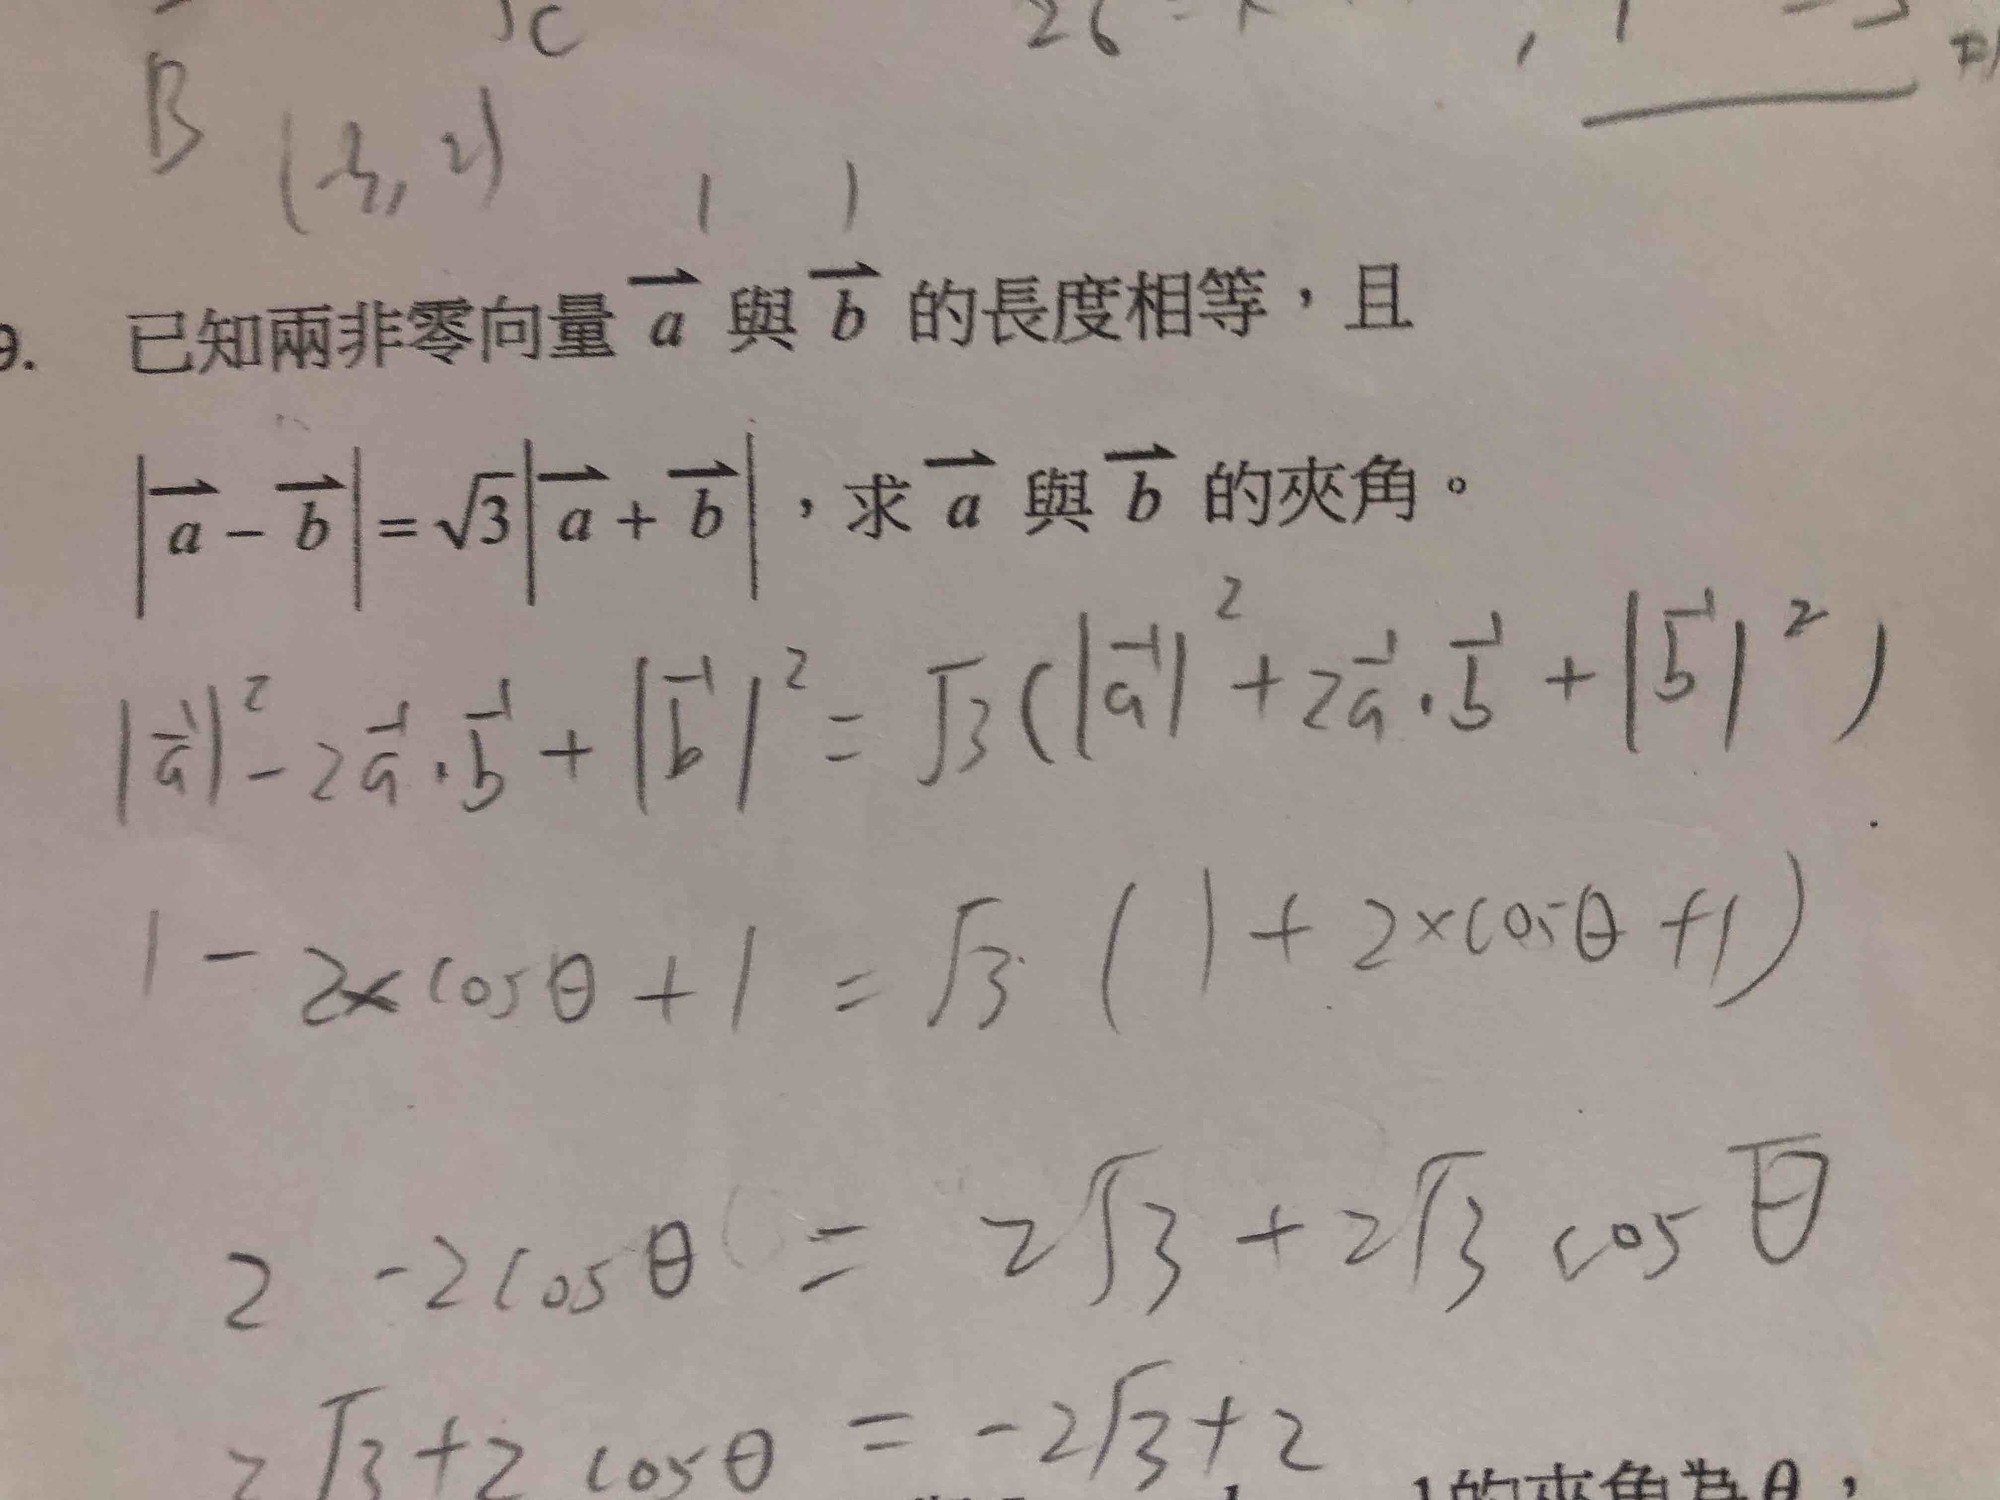 B (-3, 2)
1 1
9. 已知兩非零向量 a 與 b 的長度相等，且
|a - b| = √3|a + b|，求 a 與 b 的夾角。
|a|² - 2a·b + |b|² = √3(|a|² + 2a·b + |b|²)
1 - 2×cosθ + 1 = √3 (1 + 2×cosθ + 1)
2 - 2cosθ = 2√3 + 2√3 cosθ
2√3 + 2 cosθ = -2√3 + 2
的夾角為θ，